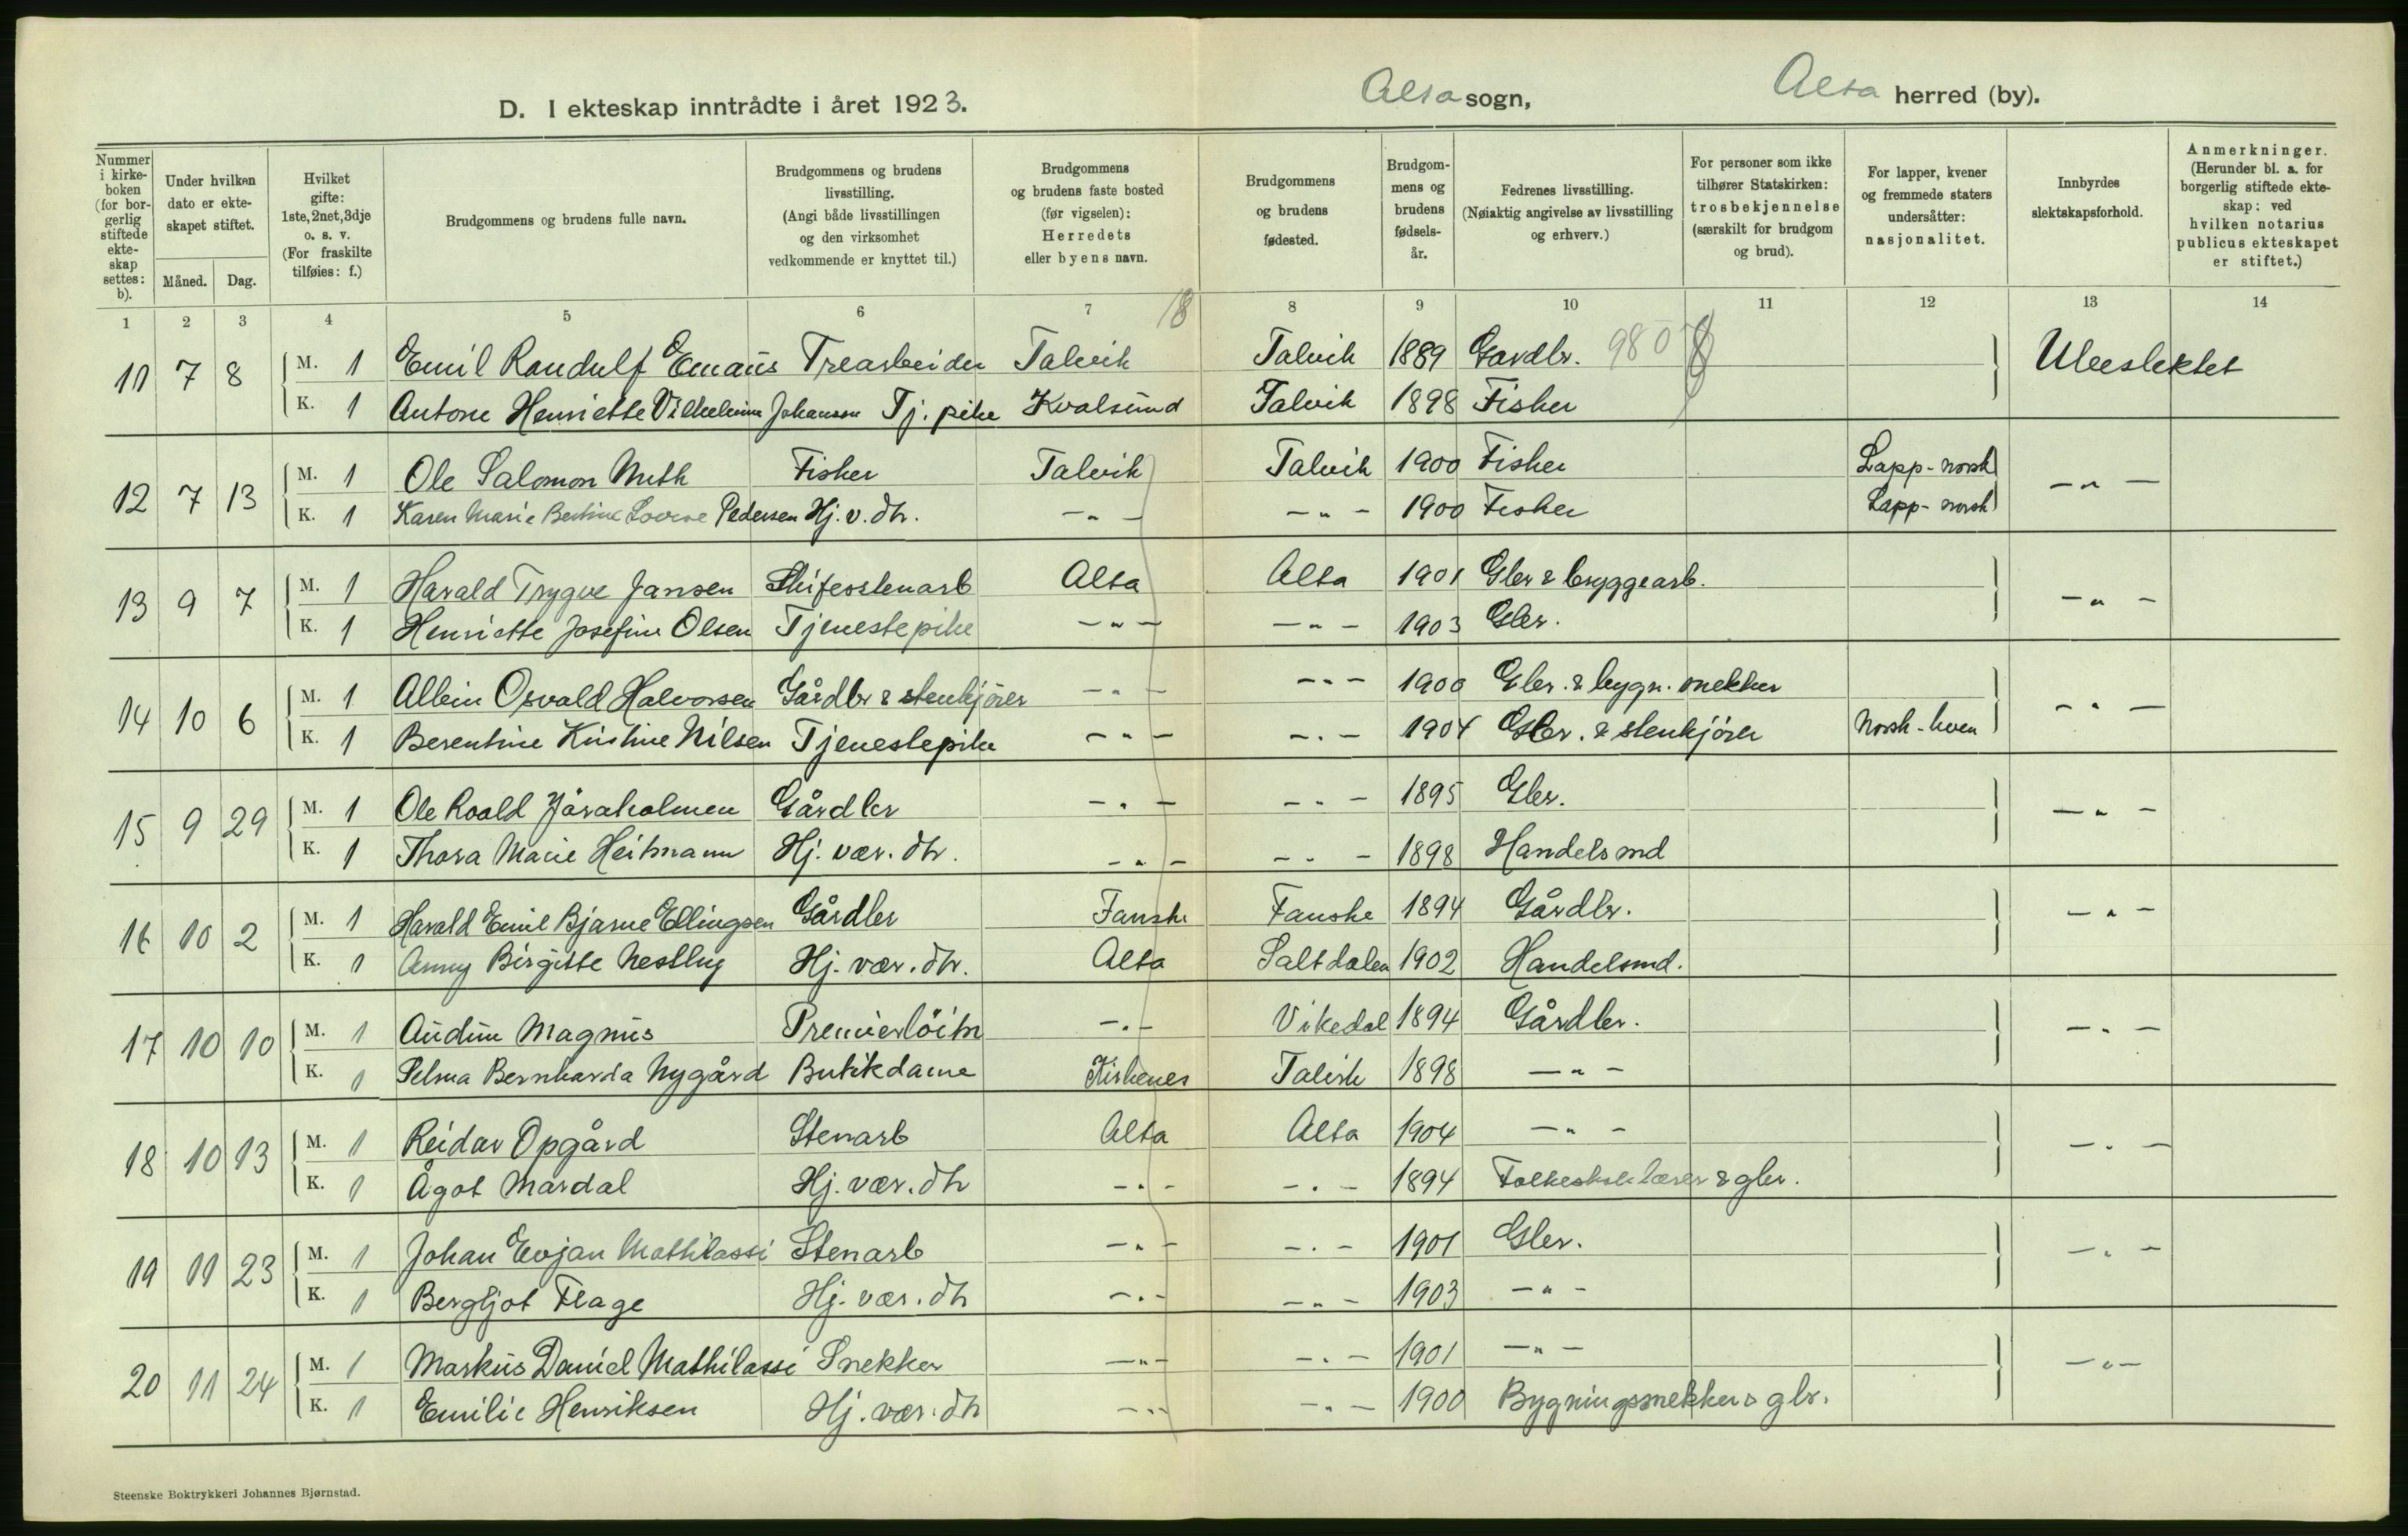 D. I ekteskap inntrådte i året 1923. Alta sogn, Alta herred (by).
Nummer i kirke-boken (for bor-gerlig stiftede ekte-skap settes: b).
Under hvilken dato er ekte-skapet stiftet.
Måned. Dag.
Hvilket gifte: 1ste, 2net, 3dje o. s. v. (For fraskilte tilføies: f.)
Brudgommens og brudens fulle navn.
Brudgommens og brudens livsstilling. (Angi både livsstillingen og den virksomhet vedkommende er knyttet til.)
Brudgommens og brudens faste bosted (før vigselen): Herredets eller byens navn.
Brudgommens og brudens fødested.
Brudgom-mens og brudens fødsels-år.
Fedrenes livsstilling. (Nøiaktig angivelse av livsstilling og erhverv.)
For personer som ikke tilhører Statskirken: trosbekjennelse (særskilt for brudgom og brud).
For lapper, kvener og fremmede staters undersåtter: nasjonalitet.
Innbyrdes slektskapsforhold.
Anmerkninger. (Herunder bl. a. for borgerlig stiftede ekte-skap: ved hvilken notarius publicus ekteskapet er stiftet.)
1 2 3 4 5 6 7 18 8 9 10 11 12 13 14
11 7 8 M. 1 Emil Randulf Emaus Trearbeider Talvik Talvik 1889 Gardbr. 980 Ubeslektet
K. 1 Antone Henriette Vilhelmine Johansen Tj. pike Kvalsund Talvik 1898 Fisker
12 7 13 M. 1 Ole Salomon Muth Fisker Talvik Talvik 1900 Fisker Lapp-norsk - " -
K. 1 Karen Marie Bertine Lovise Pedersen Hj. v. dtr. - " - - " - 1900 Fisker Lapp-norsk
13 9 7 M. 1 Harald Trygve Jansen Skiferstenarb Alta Alta 1901 Gbr & bryggearb. - " -
K. 1 Henriette Josefine Olsen Tjenestepike - " - - " - 1903 Gbr.
14 10 6 M. 1 Albin Osvald Halvorsen Gårdbr & stenkjører - " - - " - 1900 Gbr. & bygn. snekker - " -
K. 1 Berentine Kristine Nilsen Tjenestepike - " - - " - 1904 Gbr. & stenkjører Norsk-kven
15 9 29 M. 1 Ole Roald Jöraholmen Gårdbr - " - - " - 1895 Gbr. - " -
K. 1 Thora Marie Heitmann Hj. vær. dtr. - " - - " - 1898 Handelsmd
16 10 2 M. 1 Harald Emil Bjarne Ellingsen Gårdbr Fauske Fauske 1894 Gårdbr. - " -
K. 1 Anny Birgitte Nestby Hj. vær. dtr. Alta Saltdalen 1902 Handelsmd.
17 10 10 M. 1 Audun Magnus Premierlöitn - " - Vikedal 1894 Gårdbr. - " -
K. 1 Selma Bernharda Nygård Butikdame Kirkenes Talvik 1898 - " -
18 10 13 M. 1 Reidar Opgård Stenarb Alta Alta 1904 - " - - " -
K. 1 Ågot Mardal Hj. vær. dtr - " - - " - 1894 Folkeskolelærer & gbr.
19 11 23 M. 1 Johan Evjan Mathilassi Stenarb - " - - " - 1901 Gbr. - " -
K. 1 Bergljot Flage Hj. vær. dtr - " - - " - 1903 - " -
20 11 24 M. 1 Markus Daniel Mathilassi Snekker - " - - " - 1901 - " - - " -
K. 1 Emilie Henriksen Hj. vær. dtr - " - - " - 1900 Bygningssnekker & gbr.
Steenske Boktrykkeri Johannes Bjørnstad.